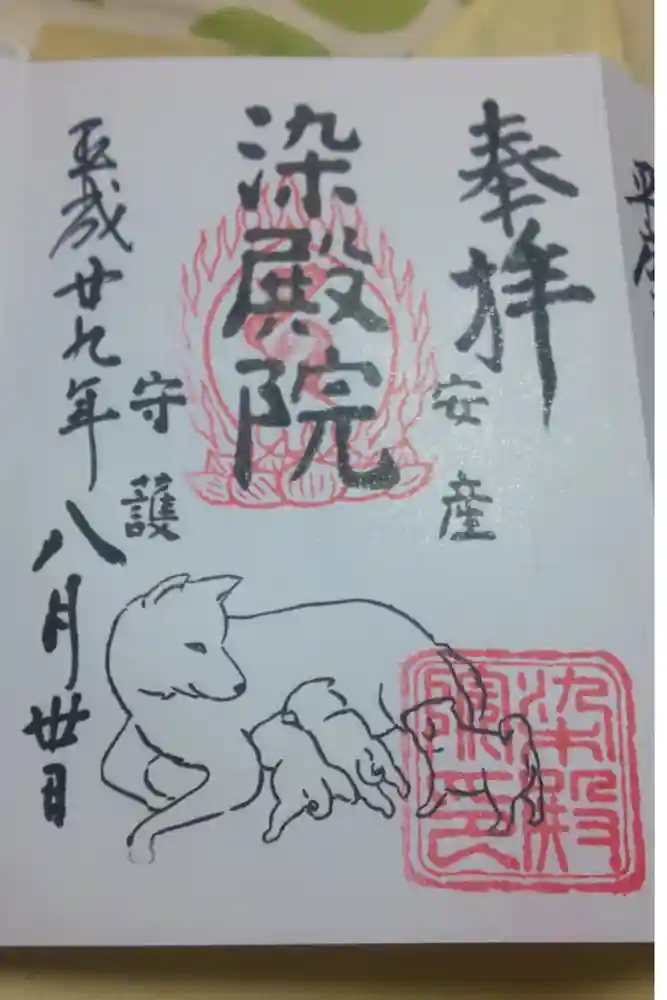 奉拝
安産
染殿院
守護
平成廿九年八月丗日
染殿
院印
平成